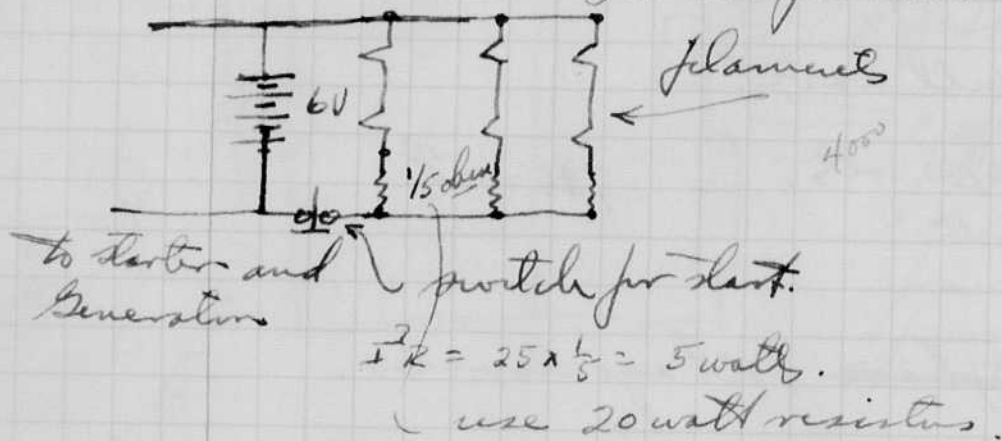 filaments
6V
4000
1/5 ohm
to starter and
Generator
switch for start.
I²R = 25 x 1/5 = 5 watts.
use 20 watt resistors.